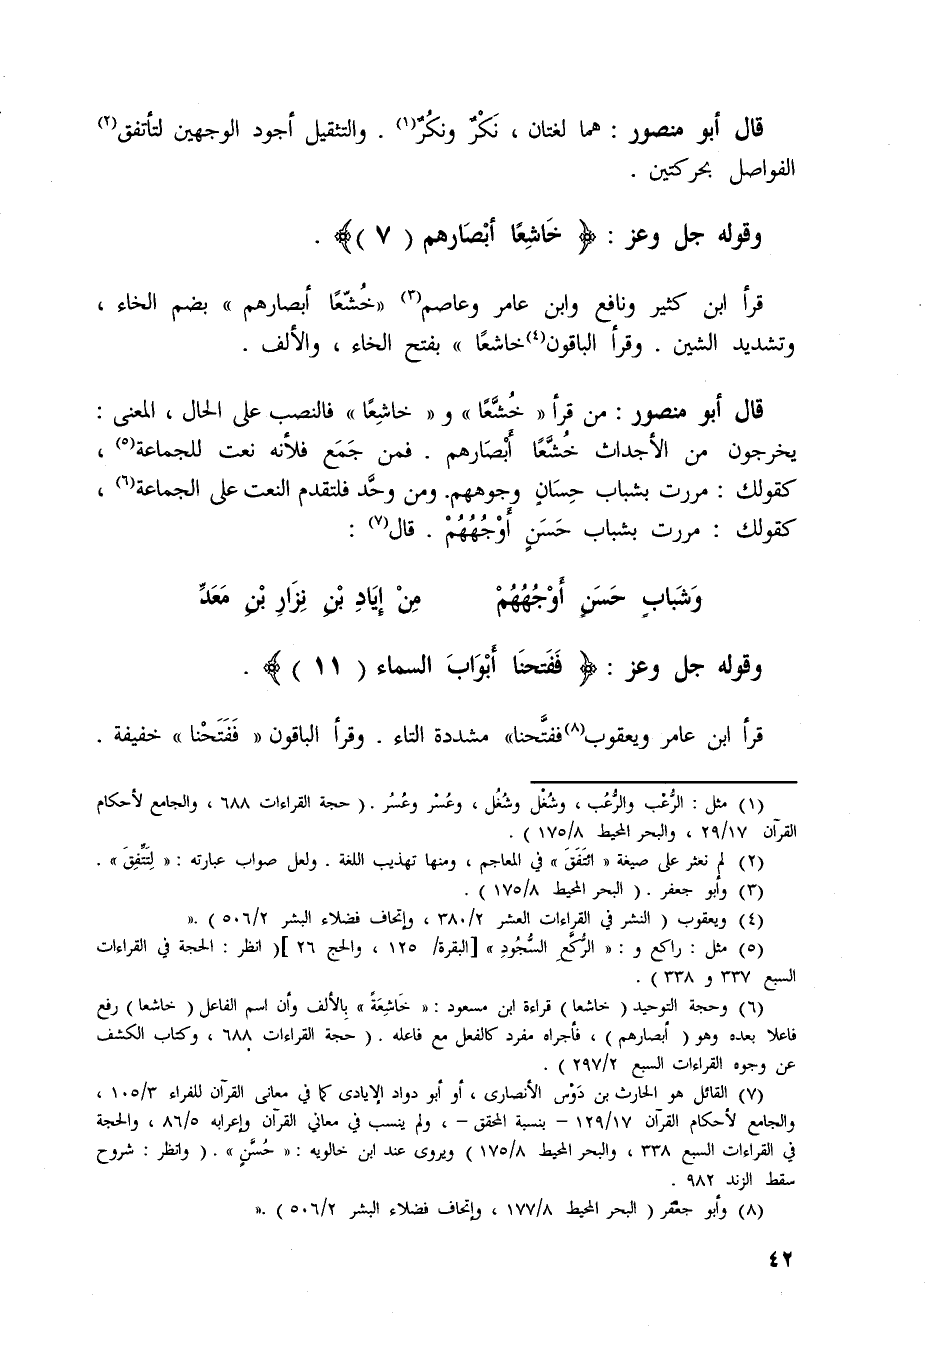 قال أبو منصور : هما لغتان ، نَكْرٌ ونكُرٌ(١) . والتثقيل أجود الوجهين لتأتفق(٢)
الفواصل بحركتين .
وقوله جل وعز : ﴿ خَاشِعًا أبْصَارهم ( ٧ )﴾ .
قرأ ابن كثير ونافع وابن عامر وعاصم(٣) «خُشّعًا أبصارهم » بضم الخاء ،
وتشديد الشين . وقرأ الباقون(٤)خاشعًا » بفتح الخاء ، والألف .
قال أبو منصور : من قرأ « خُشَّعًا » و « خاشِعًا » فالنصب على الحال ، المعنى :
يخرجون من الأجداث خُشَّعًا أَبْصَارهم . فمن جَمَع فلأنه نعت للجماعة(٥) ،
كقولك : مررت بشباب حِسَانٍ وجوههم. ومن وحَّد فلتقدم النعت على الجماعة(٦) ،
كقولك : مررت بشباب حَسَنٍ أَوْجُهُهُمْ . قال(٧) :
وَشَبابٍ حَسَنٍ أَوْجُهُهُمْ مِنْ إيَادِ بْنِ نِزَارِ بْنِ مَعَدِّ
وقوله جل وعز : ﴿ فَفَتحنَا أَبْوَابَ السماء ( ١١ ) ﴾ .
قرأ ابن عامر ويعقوب(٨)ففتَّحنا» مشددة التاء . وقرأ الباقون « فَفَتَحْنا » خفيفة .
(١) مثل : الرُّعْب والرُّعُب ، وشُغْل وشُغُل ، وعُسْر وعُسُر .( حجة القراءات ٦٨٨ ، والجامع لأحكام
القرآن ٢٩/١٧ ، والبحر المحيط ١٧٥/٨ ) .
(٢) لم نعثر على صيغة « ائتَفَقَ » في المعاجم ، ومنها تهذيب اللغة . ولعل صواب عبارته : « لِتَتَّفِقَ » .
(٣) وأبو جعفر .( البحر المحيط ١٧٥/٨ ) .
(٤) ويعقوب ( النشر في القراءات العشر ٣٨٠/٢ ، وإتحاف فضلاء البشر ٥٠٦/٢ ) .«
(٥) مثل : راكع و : « الرُّكَّعِ السُّجُودِ » [البقرة/ ١٢٥ ، والحج ٢٦ ]( انظر : الحجة في القراءات
السبع ٣٣٧ و ٣٣٨ ) .
(٦) وحجة التوحيد ( خاشعا ) قراءة ابن مسعود : « خَاشِعَةً » بالألف وأن اسم الفاعل ( خاشعا ) رفع
فاعلا بعده وهو ( أبصارهم ) ، فأجراه مفرد كالفعل مع فاعله .( حجة القراءات ٦٨٨ ، وكتاب الكشف
عن وجوه القراءات السبع ٢٩٧/٢ ) .
(٧) القائل هو الحارث بن دَوْس الأنصارى ، أو أبو دواد الإيادى كما في معانى القرآن للفراء ١٠٥/٣ ،
والجامع لأحكام القرآن ١٢٩/١٧ – بنسبة المحقق – ، ولم ينسب في معاني القرآن وإعرابه ٨٦/٥ ، والحجة
في القراءات السبع ٣٣٨ ، والبحر المحيط ١٧٥/٨ ) ويروى عند ابن خالويه : « حُسَّنٍ » .( وانظر : شروح
سقط الزند ٩٨٢ .
(٨) وأبو جعفر ( البحر المحيط ١٧٧/٨ ، وإتحاف فضلاء البشر ٥٠٦/٢ ) .«
٤٢